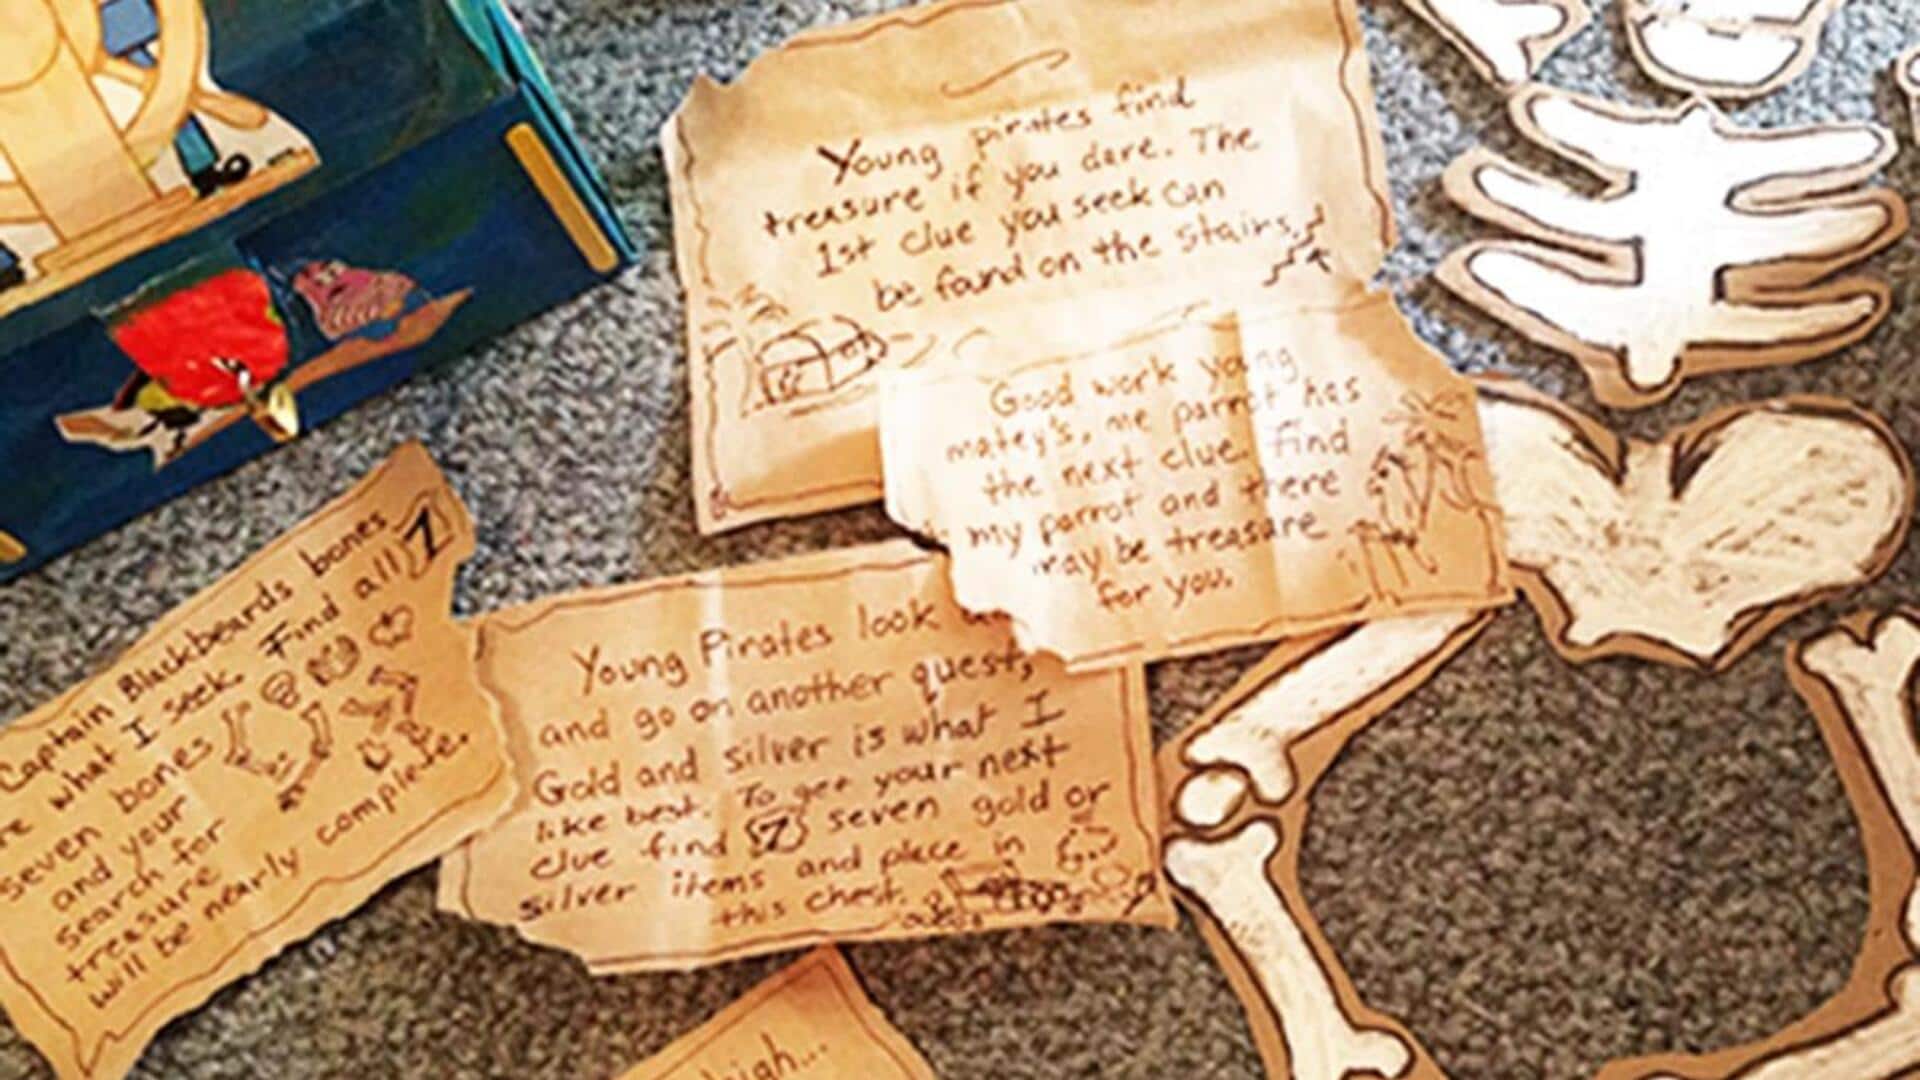 Young pirates find
treasure if you dare. The
1st clue you seek can
be found on the stairs.
Good work young
matey's, me parrot has
the next clue. Find
my parrot and there
may be treasure
for you.
Captain Blackbeards bones
are what I seek. Find all 7
seven bones
and your
search for
treasure
will be nearly complete.
Young Pirates look
and go on another quest,
Gold and silver is what I
like best. To get your next
clue find 7 seven gold or
silver items and place in
this chest.